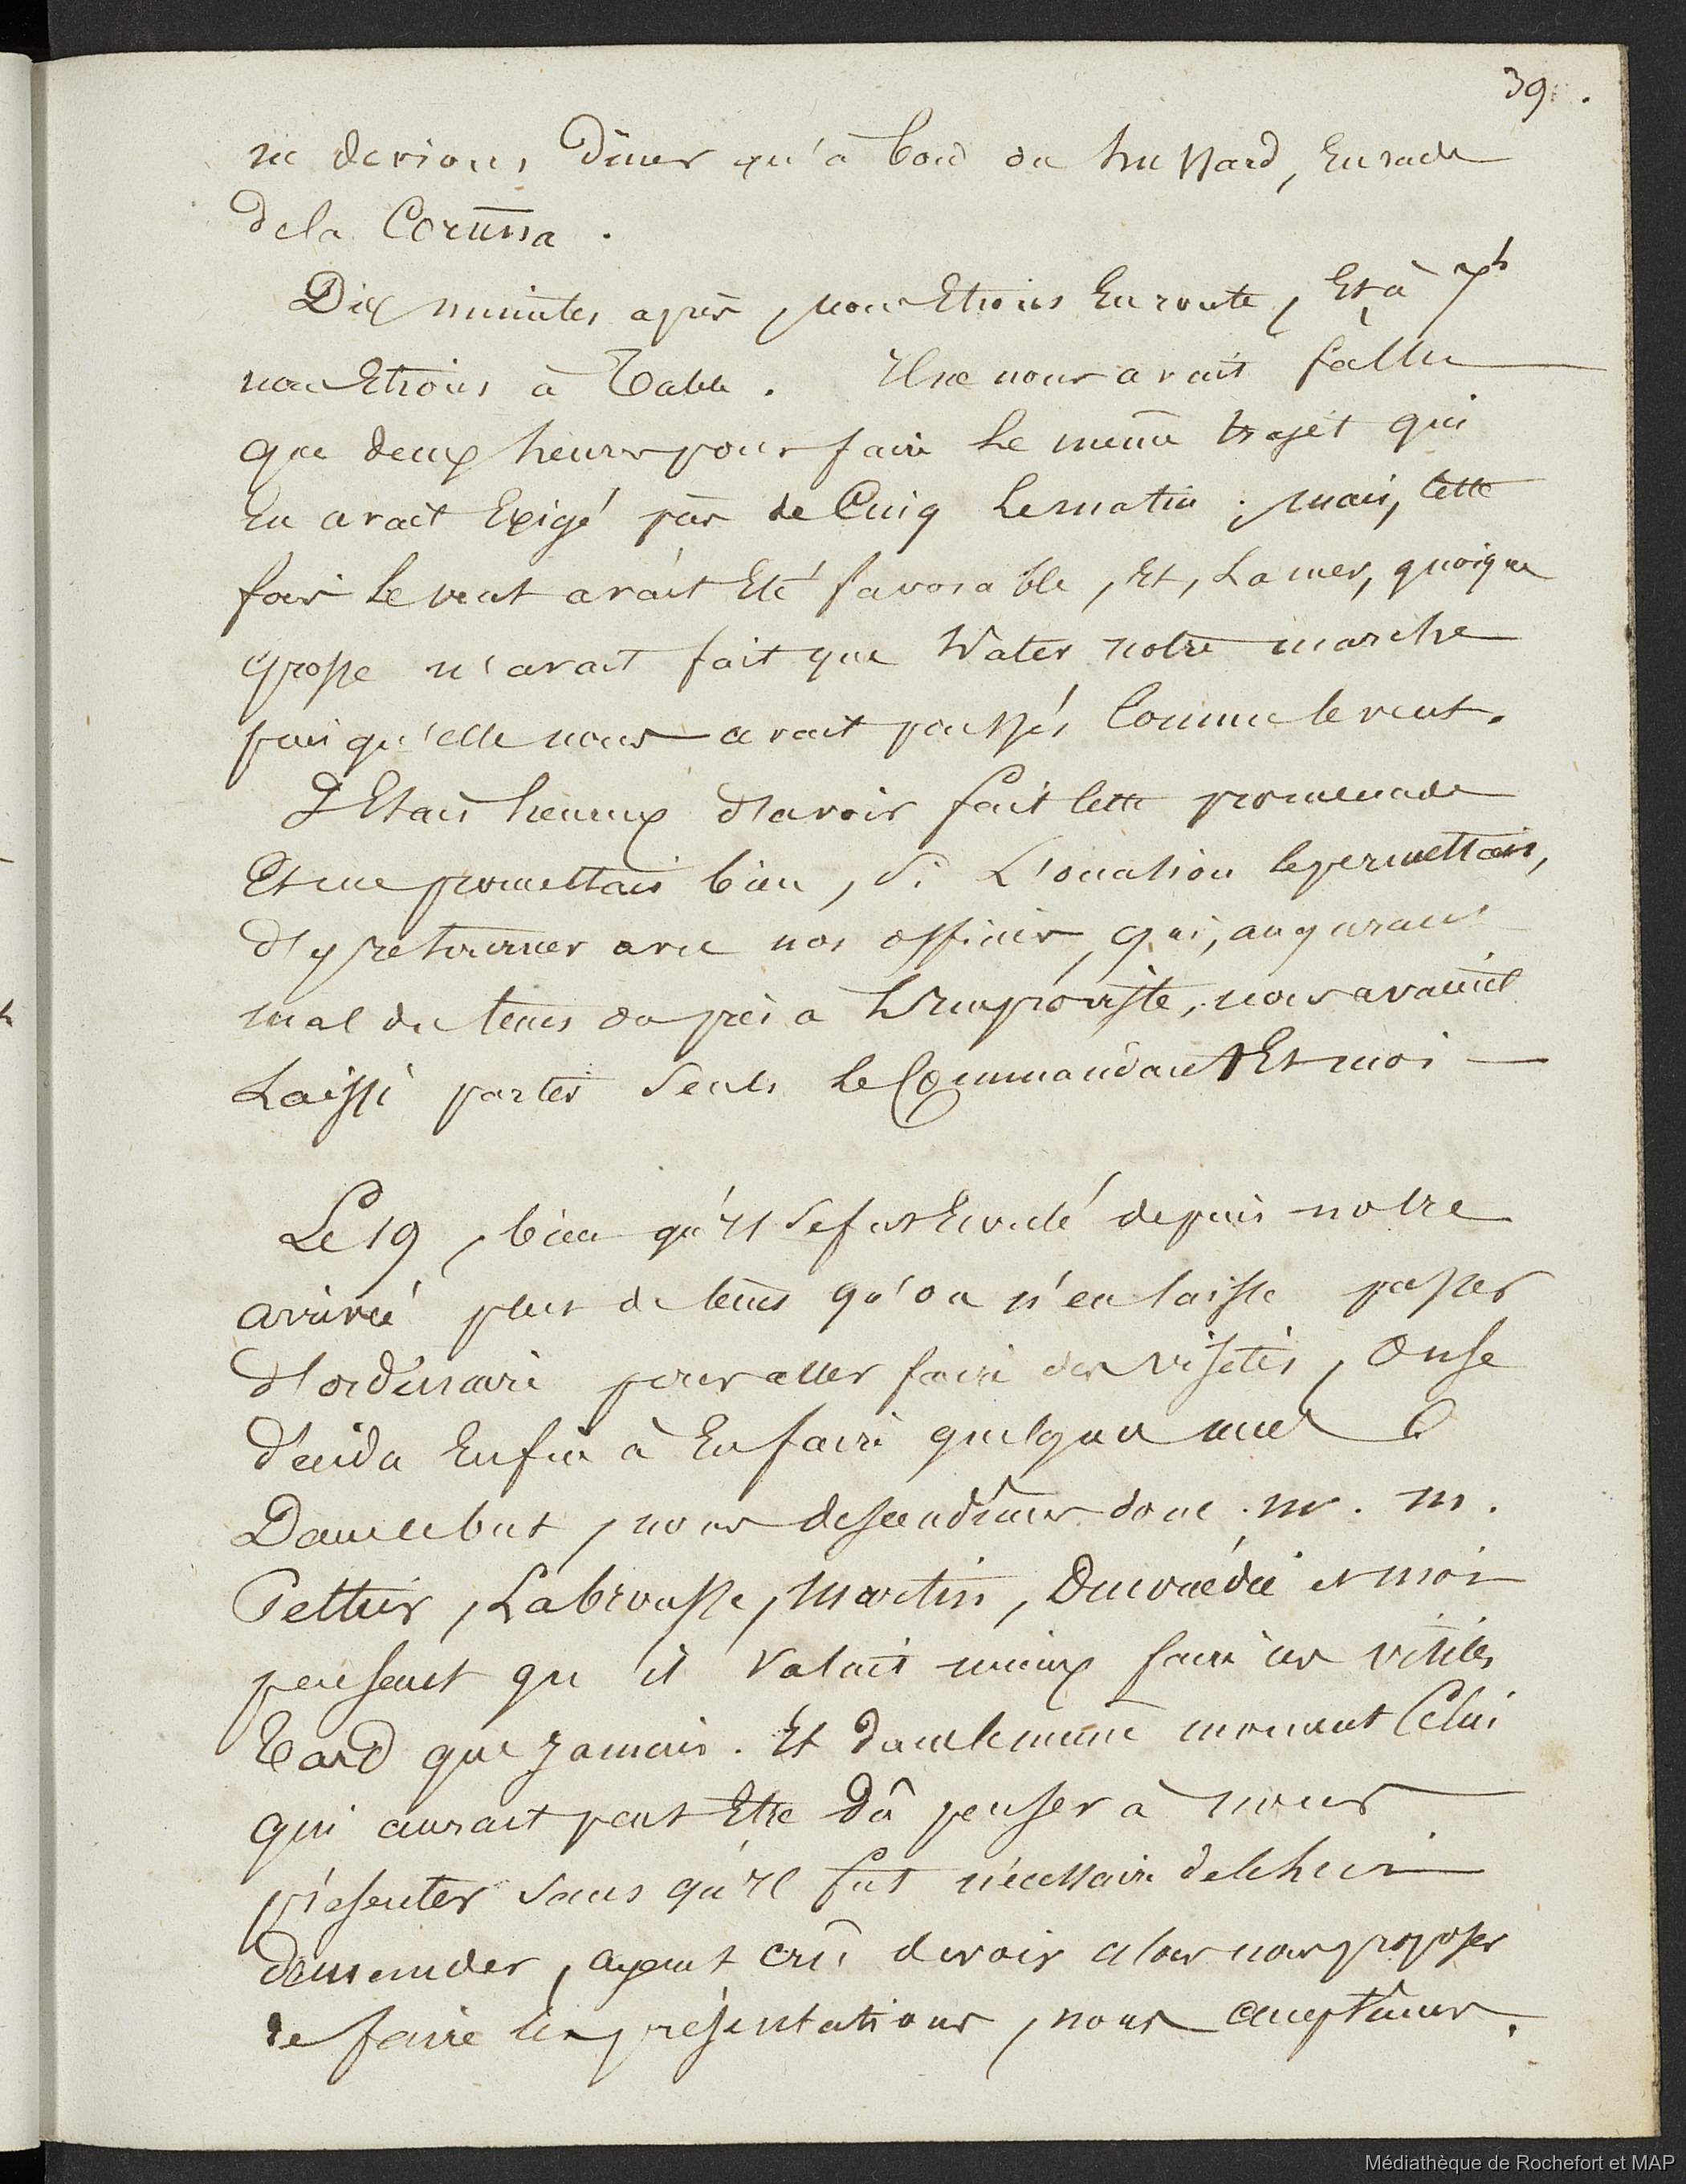 39.
ne devions diner qu'à bord du hussard, En rade
de la Corunna.
Dix minutes après, nous Etions En route, Et à 7h
nous Etions à Table. Il ne nous avait fallu
que deux heures pour faire le même trajet qui
En avait Exigé près de Cinq le matin; mais, cette
fois le vent avait Eté favorable, Et, La mer, quoique
grosse n'avait fait que hater notre marche
puisqu'elle nous avait poussés Comme le vent.
J'Etais heureux d'avoir fait cette promenade
Et me promettais bien, si L'occasion le permettais,
d'y retourner avec nos officiers, qui, augurant
mal du tems ou pris à L'improviste, nous avaient
Laissé partir seuls le Commandant Et moi
Le 19, bien qu'il se fut Ecoulé depuis notre
arrivée plus de tems qu'on n'en laisse passer
d'ordinaire pour aller faire des visites, on se
décida Enfin à En faire quelques unes.
Dans ce but, nous descendimes donc m. m.
Labrousse, Martin, et moi
pensant qu'il valait mieux faire ces visites
Tard que jamais. Et dans le même moment Celui
qui aurait peut Etre Dû penser à nous
présenter sans qu'il fut nécessaire de le lui
demander, ayant crû devoir alors nous proposer
de faire les présentations, nous acceptâmes.
Médiathèque de Rochefort et MAP